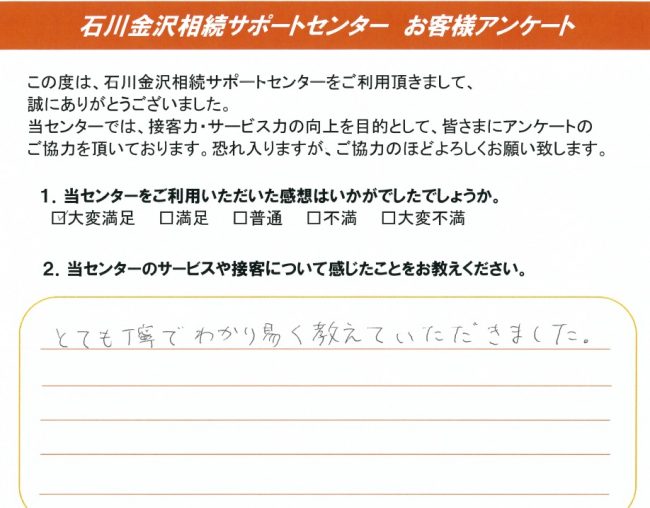 石川金沢相続サポートセンター お客様アンケート
この度は、石川金沢相続サポートセンターをご利用頂きまして、
誠にありがとうございました。
当センターでは、接客力・サービス力の向上を目的として、皆さまにアンケートの
ご協力を頂いております。恐れ入りますが、ご協力のほどよろしくお願い致します。
1．当センターをご利用いただいた感想はいかがでしたでしょうか。
☑大変満足 □満足 □普通 □不満 □大変不満
2．当センターのサービスや接客について感じたことをお教えください。
とても丁寧でわかり易く教えていただきました。